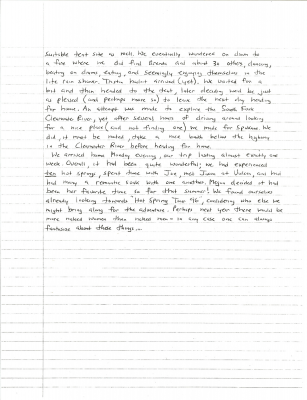 suitable tent site as well. We eventually wandered on down to
a fire where we did find Brenda and about 30 others, dancing,
beating on drums, eating, and seemingly enjoying themselves in the
late rain shower. Tents hadn't arrived (yet). We waited for a
bit and then headed to the tent, later deciding we'd be just
as pleased (and perhaps more so) to leave the next day heading
for home. An attempt was made to explore the South Fork
Clearwater River, yet after several hours of driving around looking
for a nice place (and not finding one) we made for Spokane. We
did, it must be noted, take a nice bath below the highway
in the Clearwater River before heading for home.
We arrived home Monday evening, our trip lasting almost exactly one
week. Overall, it had been quite wonderful; we had experienced
ten hot springs, spent time with Joe, met June at, and had
had many a romantic soak with one another. decided it had
been her favorite time so far that summer! We found ourselves
already looking towards Hot Spring Tour 96, considering who else we
might bring along for the adventure. Perhaps next year there would be
more naked women than naked men - in any case one can always
fantasize about these things...